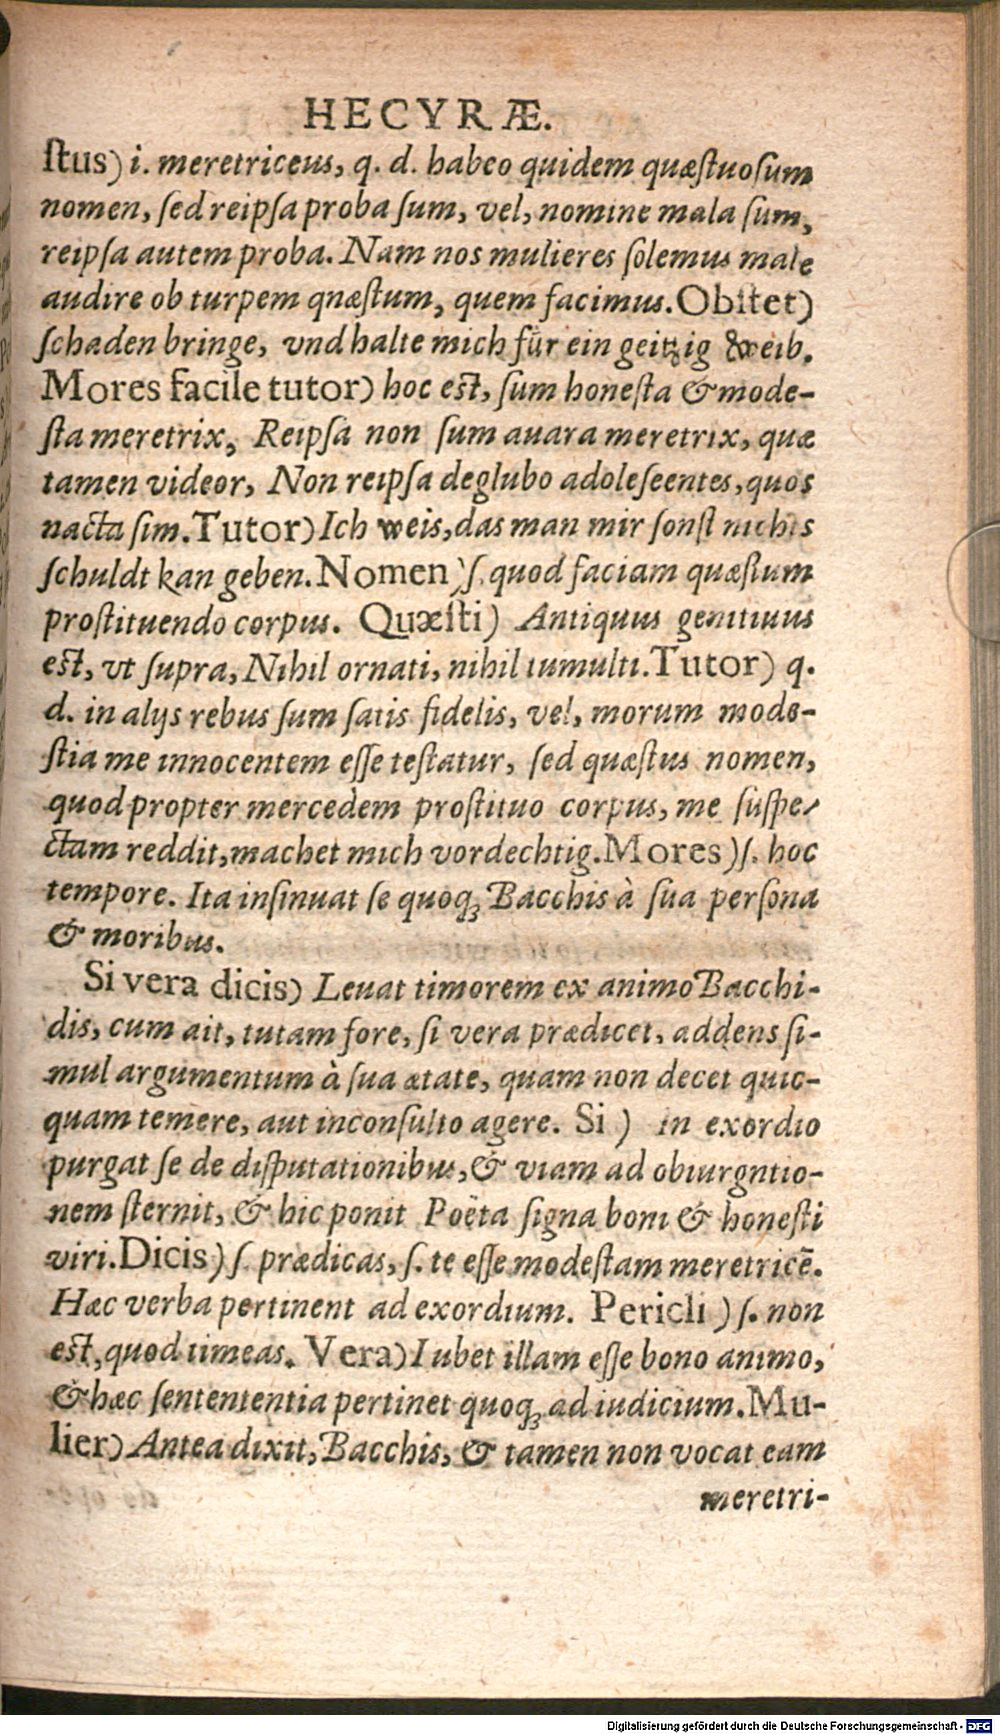 HECYRÆ.
ſtus) i. meretriceus, q. d. habeo quidem quæſtuoſum
nomen, ſed reipſa proba ſum, vel, nomine mala ſum,
reipſa autem proba. Nam nos mulieres ſolemus male
audire ob turpem qnæſtum, quem facimus. Obſtet)
ſchaden bringe, vnd halte mich für ein geitzig weib.
Mores facile tutor) hoc eſt, ſum honeſta & mode-
ſta meretrix, Reipſa non ſum auara meretrix, quæ
tamen videor, Non reipſa deglubo adoleſeentes, quos
nacta ſim. Tutor) Ich weis, das man mir ſonſt nichts
ſchuldt kan geben. Nomen) ſ. quod faciam quæſtum
proſtituendo corpus. Quæſti) Antiquus genitiuus
eſt, vt ſupra, Nihil ornati, nihil tumulti. Tutor) q.
d. in alijs rebus ſum ſatis fidelis, vel, morum mode-
ſtia me innocentem eſſe teſtatur, ſed quæſtus nomen,
quod propter mercedem proſtituo corpus, me ſuſpe-
ctam reddit, machet mich vordechtig. Mores) ſ. hoc
tempore. Ita inſinuat ſe quoqꝫ Bacchis à ſua perſona
& moribus.
Si vera dicis) Leuat timorem ex animo Bacchi-
dis, cum ait, tutam fore, ſi vera prædicet, addens ſi-
mul argumentum à ſua ætate, quam non decet quic-
quam temere, aut inconſulto agere. Si) in exordio
purgat ſe de diſputationibus, & viam ad obiurgntio-
nem ſternit, & hic ponit Poëta ſigna boni & honeſti
viri. Dicis) ſ. prædicas, ſ. te eſſe modeſtam meretricē.
Hæc verba pertinent ad exordium. Pericli) ſ. non
eſt, quod timeas. Vera) Iubet illam eſſe bono animo,
& hæc ſentententia pertinet quoqꝫ ad iudicium. Mu-
lier) Antea dixit, Bacchis, & tamen non vocat eam
meretri-
Digitalisierung gefördert durch die Deutsche Forschungsgemeinschaft - DFG